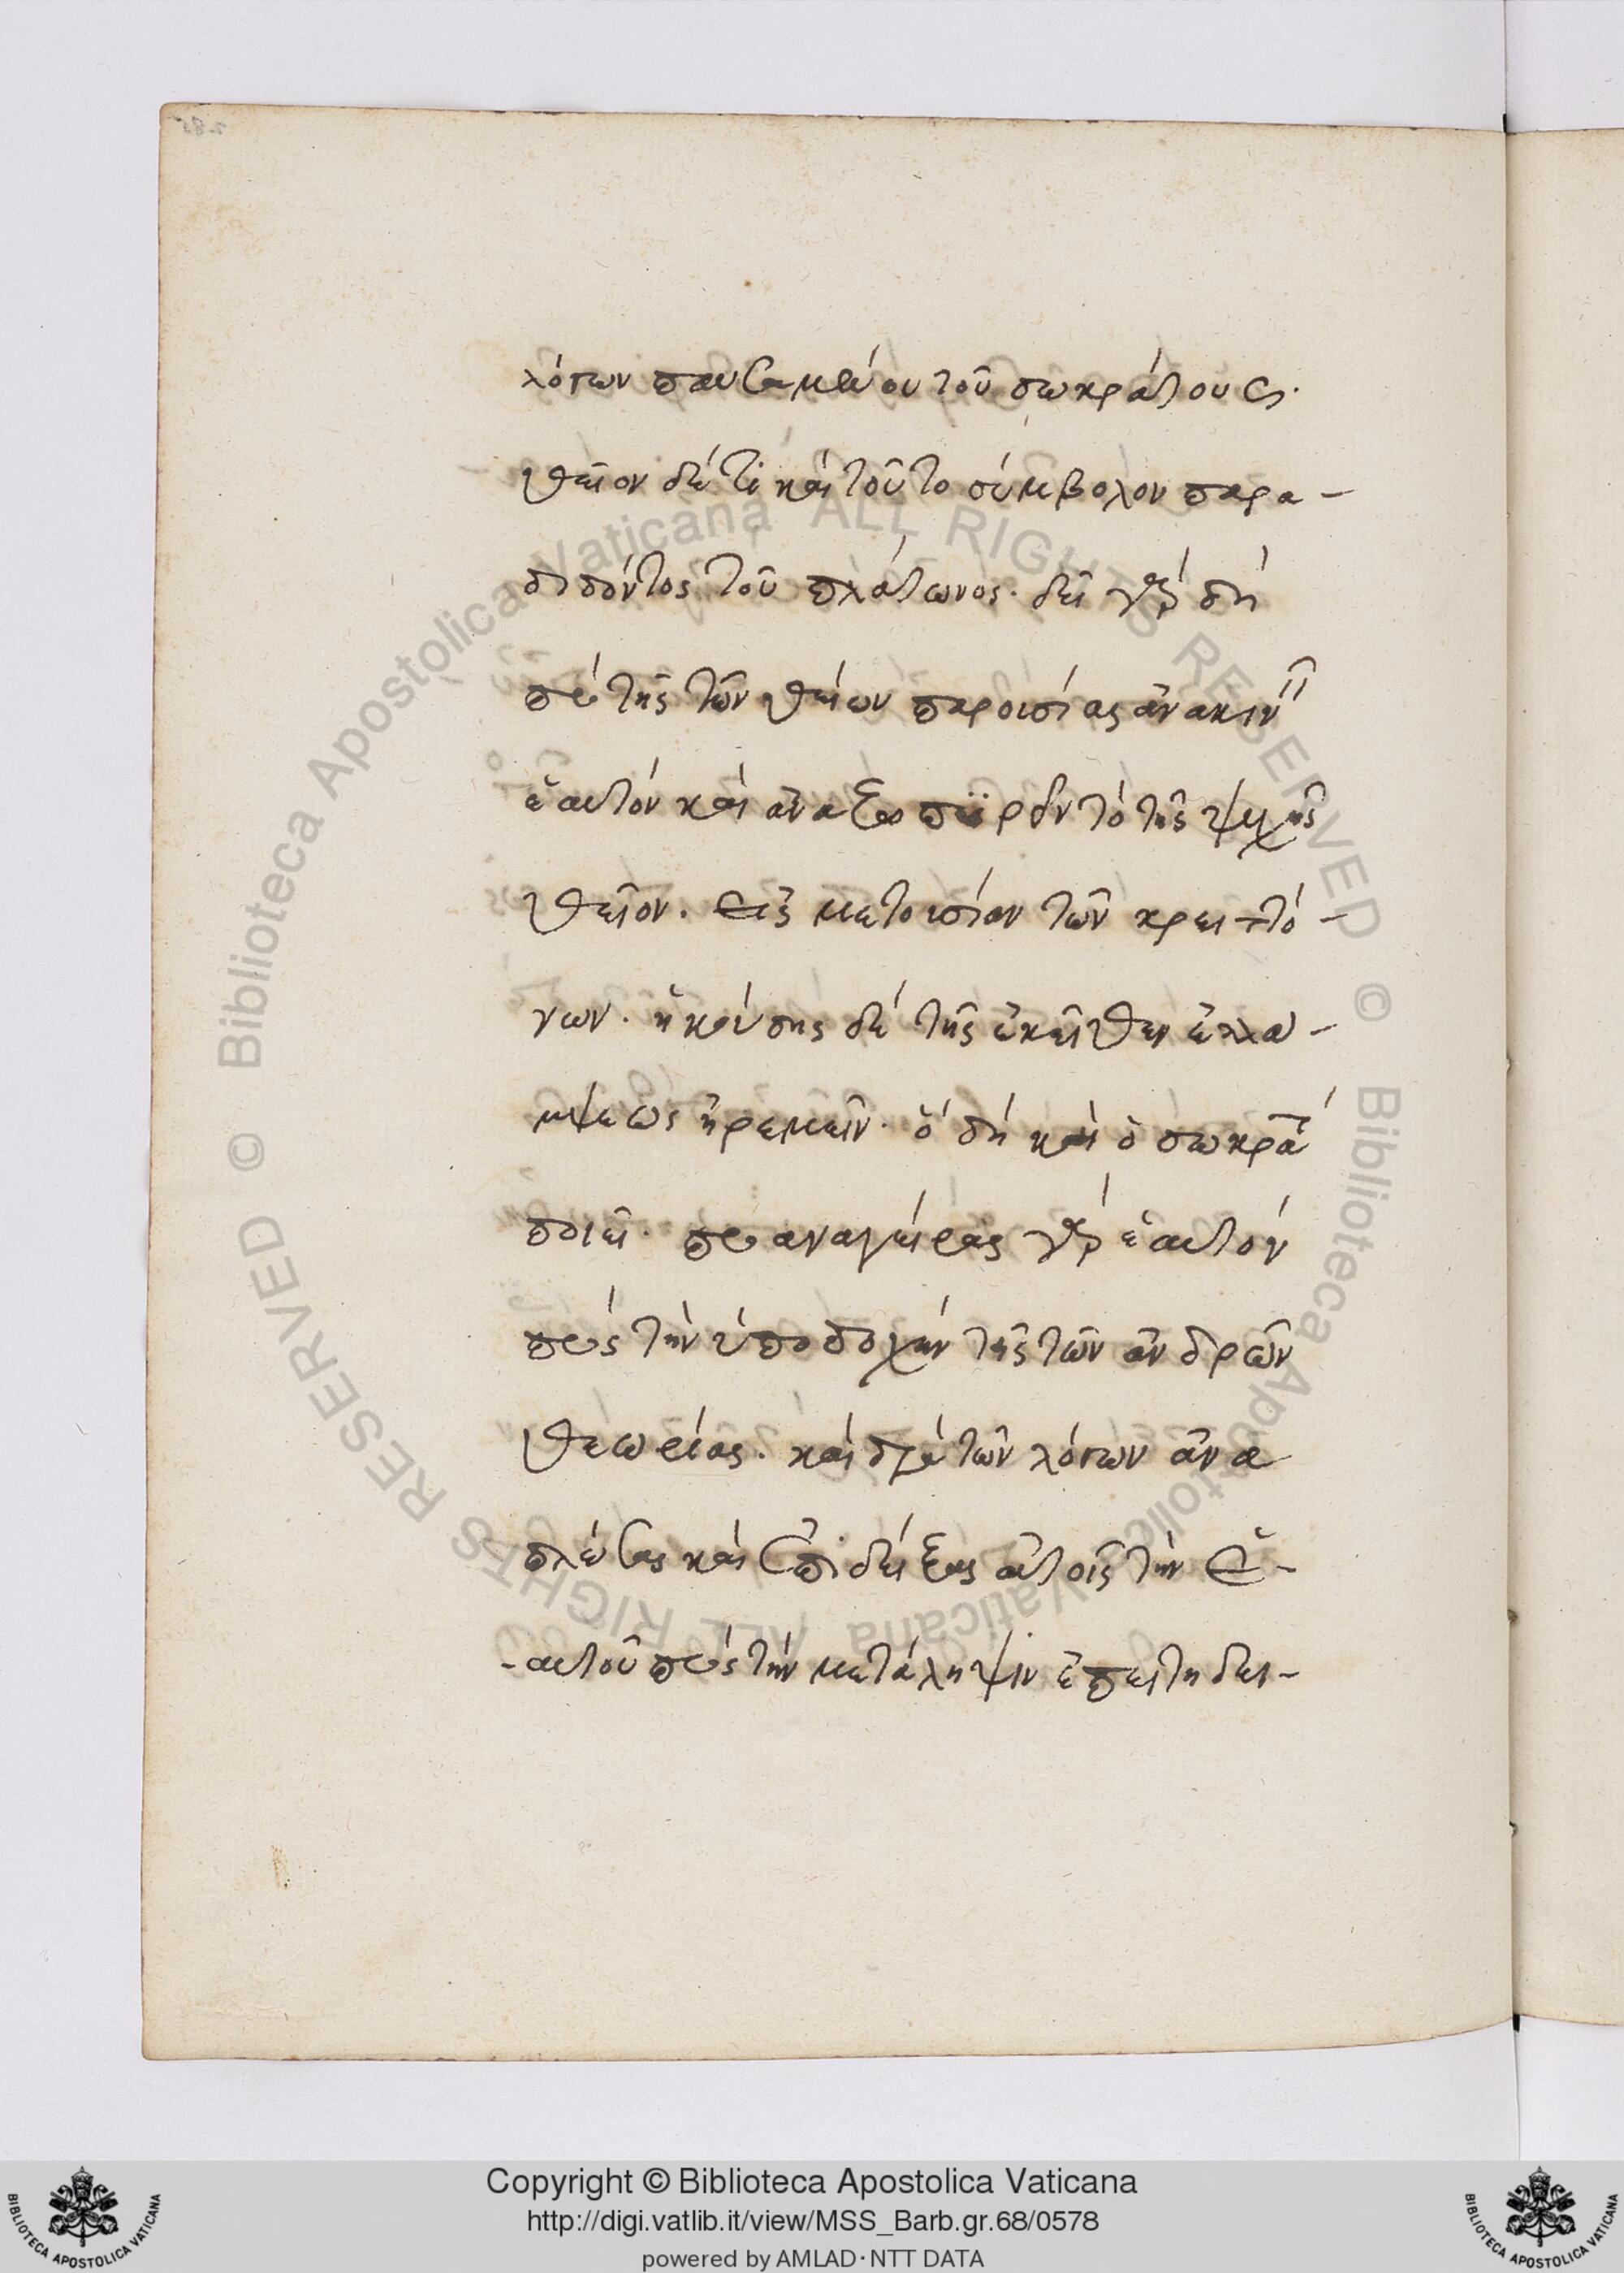 λόγων παυσαμένου τοῦ σωκράτους·
θεῖον δέ τι καὶ τοῦτο σύμβολον παρα-
διδόντος τοῦ πλάτωνος· δεῖ γὰρ δὴ
πρὸ τῆς τῶν θείων παρουσίας ἀνακινεῖν
ἑαυτὸν καὶ ἀναζωπυρεῖν τὸ τῆς ψυχῆς
θεῖον. εἰς μετουσίαν τῶν κρειττό-
νων. ἡκούσης δὲ τῆς ἐκεῖθεν ἐλλά-
μψεως ἠρεμεῖν· ὃ δὴ καὶ ὁ σωκράτης
ποιεῖ· προαναγείρας γὰρ ἑαυτὸν
πρὸς τὴν ὑποδοχὴν τῆς τῶν ἀνδρῶν
θεωρίας. καὶ διὰ τῶν λόγων ἀνα
πλώσας καὶ ἐπιδείξας αὐτοῖς τὴν ἑ-
-αυτοῦ πρὸς τὴν μετάληψιν ἐπιτηδει-
Copyright © Biblioteca Apostolica Vaticana
http://digi.vatlib.it/view/MSS_Barb.gr.68/0578
powered by AMLAD·NTT DATA